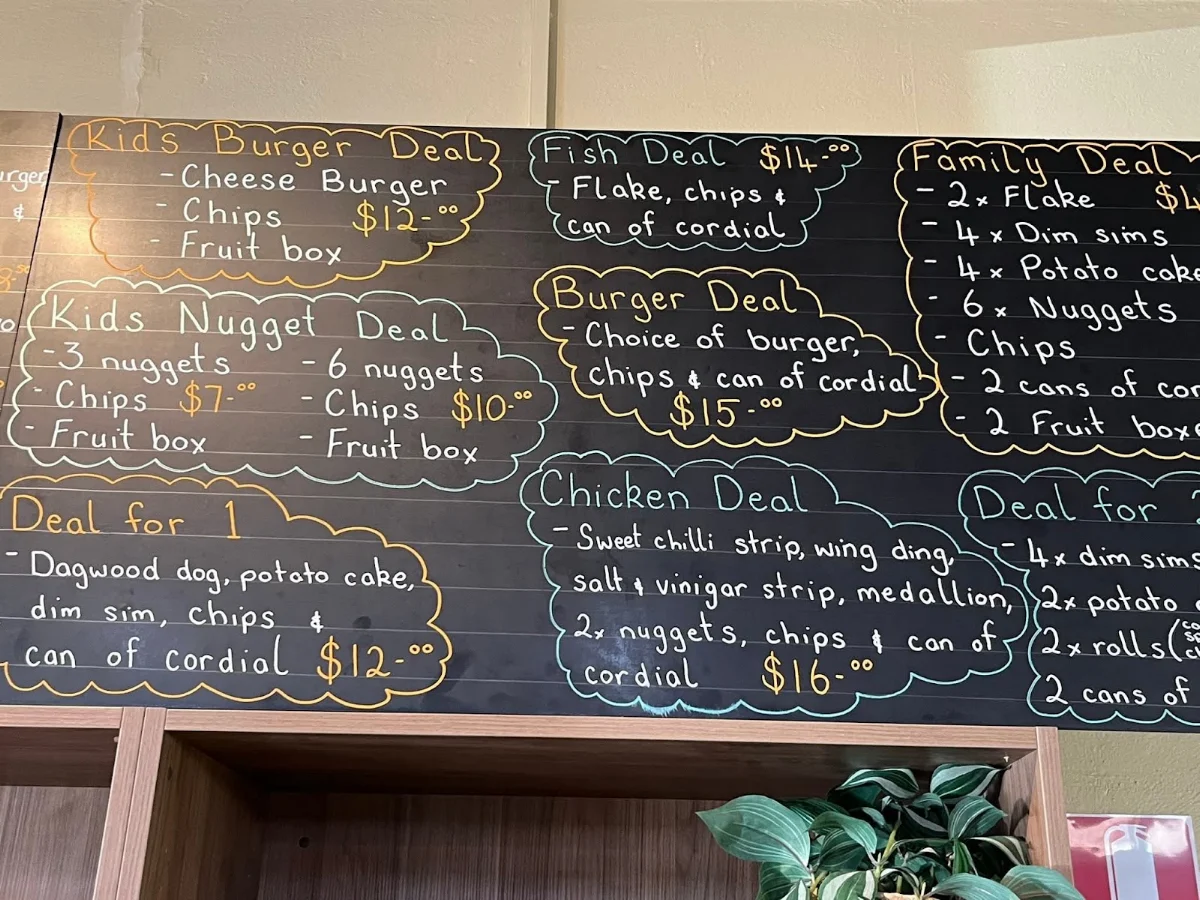 Kids Burger Deal
- Cheese Burger
- Chips $12-00
- Fruit box
Kids Nugget Deal
- 3 nuggets
- Chips $7-00
- Fruit box
- 6 nuggets
- Chips $10-00
- Fruit box
Deal for 1
- Dagwood dog, potato cake,
dim sim, chips &
can of cordial $12-00
Fish Deal $14-00
- Flake, chips &
can of cordial
Burger Deal
- Choice of burger,
chips & can of cordial
$15-00
Chicken Deal
- Sweet chilli strip, wing ding,
salt & vinigar strip, medallion,
2x nuggets, chips & can of
cordial $16-00
Family Deal
- 2x Flake $4
- 4x Dim sims
- 4x Potato cake
- 6x Nuggets
- Chips
- 2 cans of
- 2 Fruit box
Deal for
- 4x dim sims
2x potato
2x rolls (
2 cans of